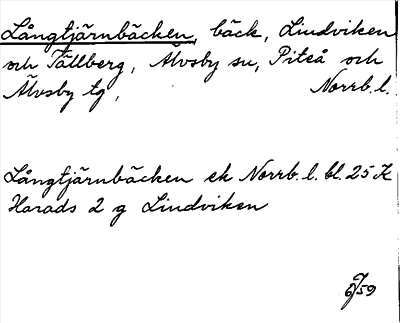 Långtjärnbäcken, bäck, Lindviken
och Tällberg, Älvsby sn, Piteå och
Älvsby tg, Norrb. l.
Långtjärnbäcken ek Norrb. l. bl. 25 K
Harads 2 g Lindviken